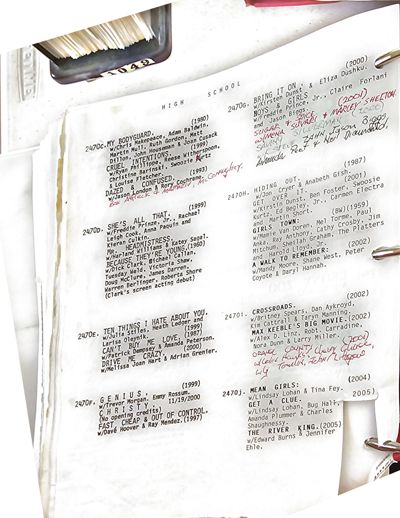 HIGH SCHOOL
2470C. MY BODYGUARD. (1980)
w/Chris Makepeace, Adam Baldwin,
Martin Mull, Ruth Gordon, Matt
Dillon, John Houseman & Joan Cusack
CRUEL INTENTIONS. (1999)
w/Ryan Phillippe, Reese Witherspoon,
Christine Baranski, Swoozie Kurtz
& Louise Fletcher.
DAZED & CONFUSED. (1993)
w/Jason London & Rory Cochrane.
Ben Affleck & Matthew McConaughey
2470D. SHE'S ALL THAT. (1999)
w/Freddie Prinze, Jr., Rachael
Leigh Cook, Anna Paquin and
Kieran Culkin.
MS. HEADMISTRESS.
w/Harland Williams & Katey Sagal.
BECAUSE THEY'RE YOUNG. (1960)
w/Dick Clark, Michael Callan,
Tuesday Weld, Victoria Shaw,
Doug McClure, James Darren,
Warren Berlinger, Roberta Shore
(Clark's screen acting debut)
2470E. TEN THINGS I HATE ABOUT YOU. (1999)
w/Julia Stiles, Heath Ledger and
Larisa Oleynik.
CAN'T BUY ME LOVE. (1987)
w/Patrick Dempsey & Amanda Peterson.
DRIVE ME CRAZY. (2000)
w/Melissa Joan Hart & Adrian Grenier.
2470F. GENIUS. (1999)
w/Trevor Morgan, Emmy Rossum
CHRISTY. 11/19/2000
(No opening credits)
FAST CHEAP & OUT OF CONTROL.
w/Dave Hoover & Ray Mendez. (1997)
2470G. BRING IT ON. (2000)
w/Kirsten Dunst & Eliza Dushku.
BOYS & GIRLS.
w/Freddie Prince, Jr., Claire Forlani
and Jason Biggs.
SUGAR & SPICE (2001)
w/MENA SUVARI & MARLEY SHELTON
Jason Biggs,
Amanda Peet & Neil Diamond
2470H. HIDING OUT. (1987)
w/Jon Cryer & Annabeth Gish.
GET OVER IT. (2001)
w/Kirstin Dunst, Ben Foster, Swoosie
Kurtz, Ed Begley, Jr., Carmen Electra
and Martin Short.
GIRLS TOWN. (BW)(1959)
w/Mamie Van Doren, Mel Torme, Paul
Anka, Ray Anthony, Cathy Crosby, Jim
Mitchum, Sheilah Graham, The Platters
and Harold Lloyd, Jr.
A WALK TO REMEMBER: (2002)
w/Mandy Moore, Shane West, Peter
Coyote & Daryl Hannah.
2470I. CROSSROADS. (2002)
w/Britney Spears, Dan Aykroyd,
Kim Cattrall & Taryn Manning.
MAX KEEBLE'S BIG MOVIE. (2002)
w/Alex D. Linz, Robt. Carradine,
Nora Dunn & Larry Miller.
ORANGE COUNTY
2470J. MEAN GIRLS: (2004)
w/Lindsay Lohan & Tina Fey.
GET A CLUE. 2005)
w/Lindsay Lohan, Bug Hall,
Amanda Plummer & Charles
Shaughnessy.
THE RIVER KING. (2005)
w/Edward Burns & Jennifer
Ehle.